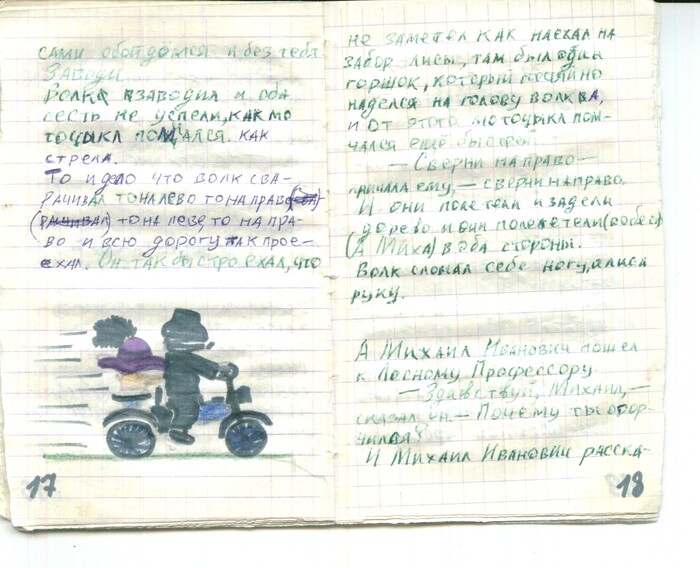 сами обойдёмся и без тебя
Заводи
Волка взаводил и они
сесть не успели, как мо
тоцыкл помчался. как
стрела.
То и дело что волк сва-
рачивал то налево то направо
то на лево, то на пра-
во и всю дорогу так прое-
ехал. Он так быстро ехал, что
17
не заметел как наехал на
забор лисы, там был один
горшок, который нечяйно
наделся на голову волква,
и от этого мотоцыкл пом-
чался ещё быстрей.
— Сверни направо —
кричала ему, — сверни направо.
И они полетели и задели
дерево и они полетели
(А Миха) в оба стороны.
Волк сломал себе ногу, а лиса
руку.
А Михаил Иванович пошел
к Лесному Профессору.
— Здравствуй, Михаил, —
сказал он. — Почему ты огор-
чился?
И Михаил Иванович расска-
18